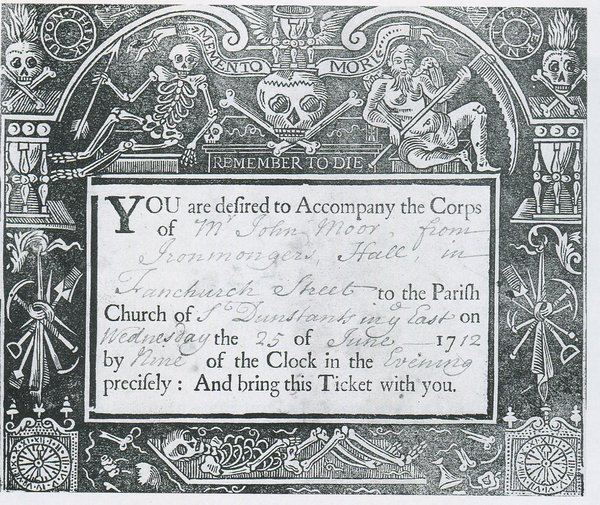 MEMENTO MORI
REMEMBER TO DIE
YOU are deſired to Accompany the Corps
of Mr John Moor, from
Ironmongers, Hall, in
Fanchurch Street to the Pariſh
Church of St Dunstans in ye East on
Wednesday the 25 of June 1712
by Nine of the Clock in the Evening
preciſely: And bring this Ticket with you.